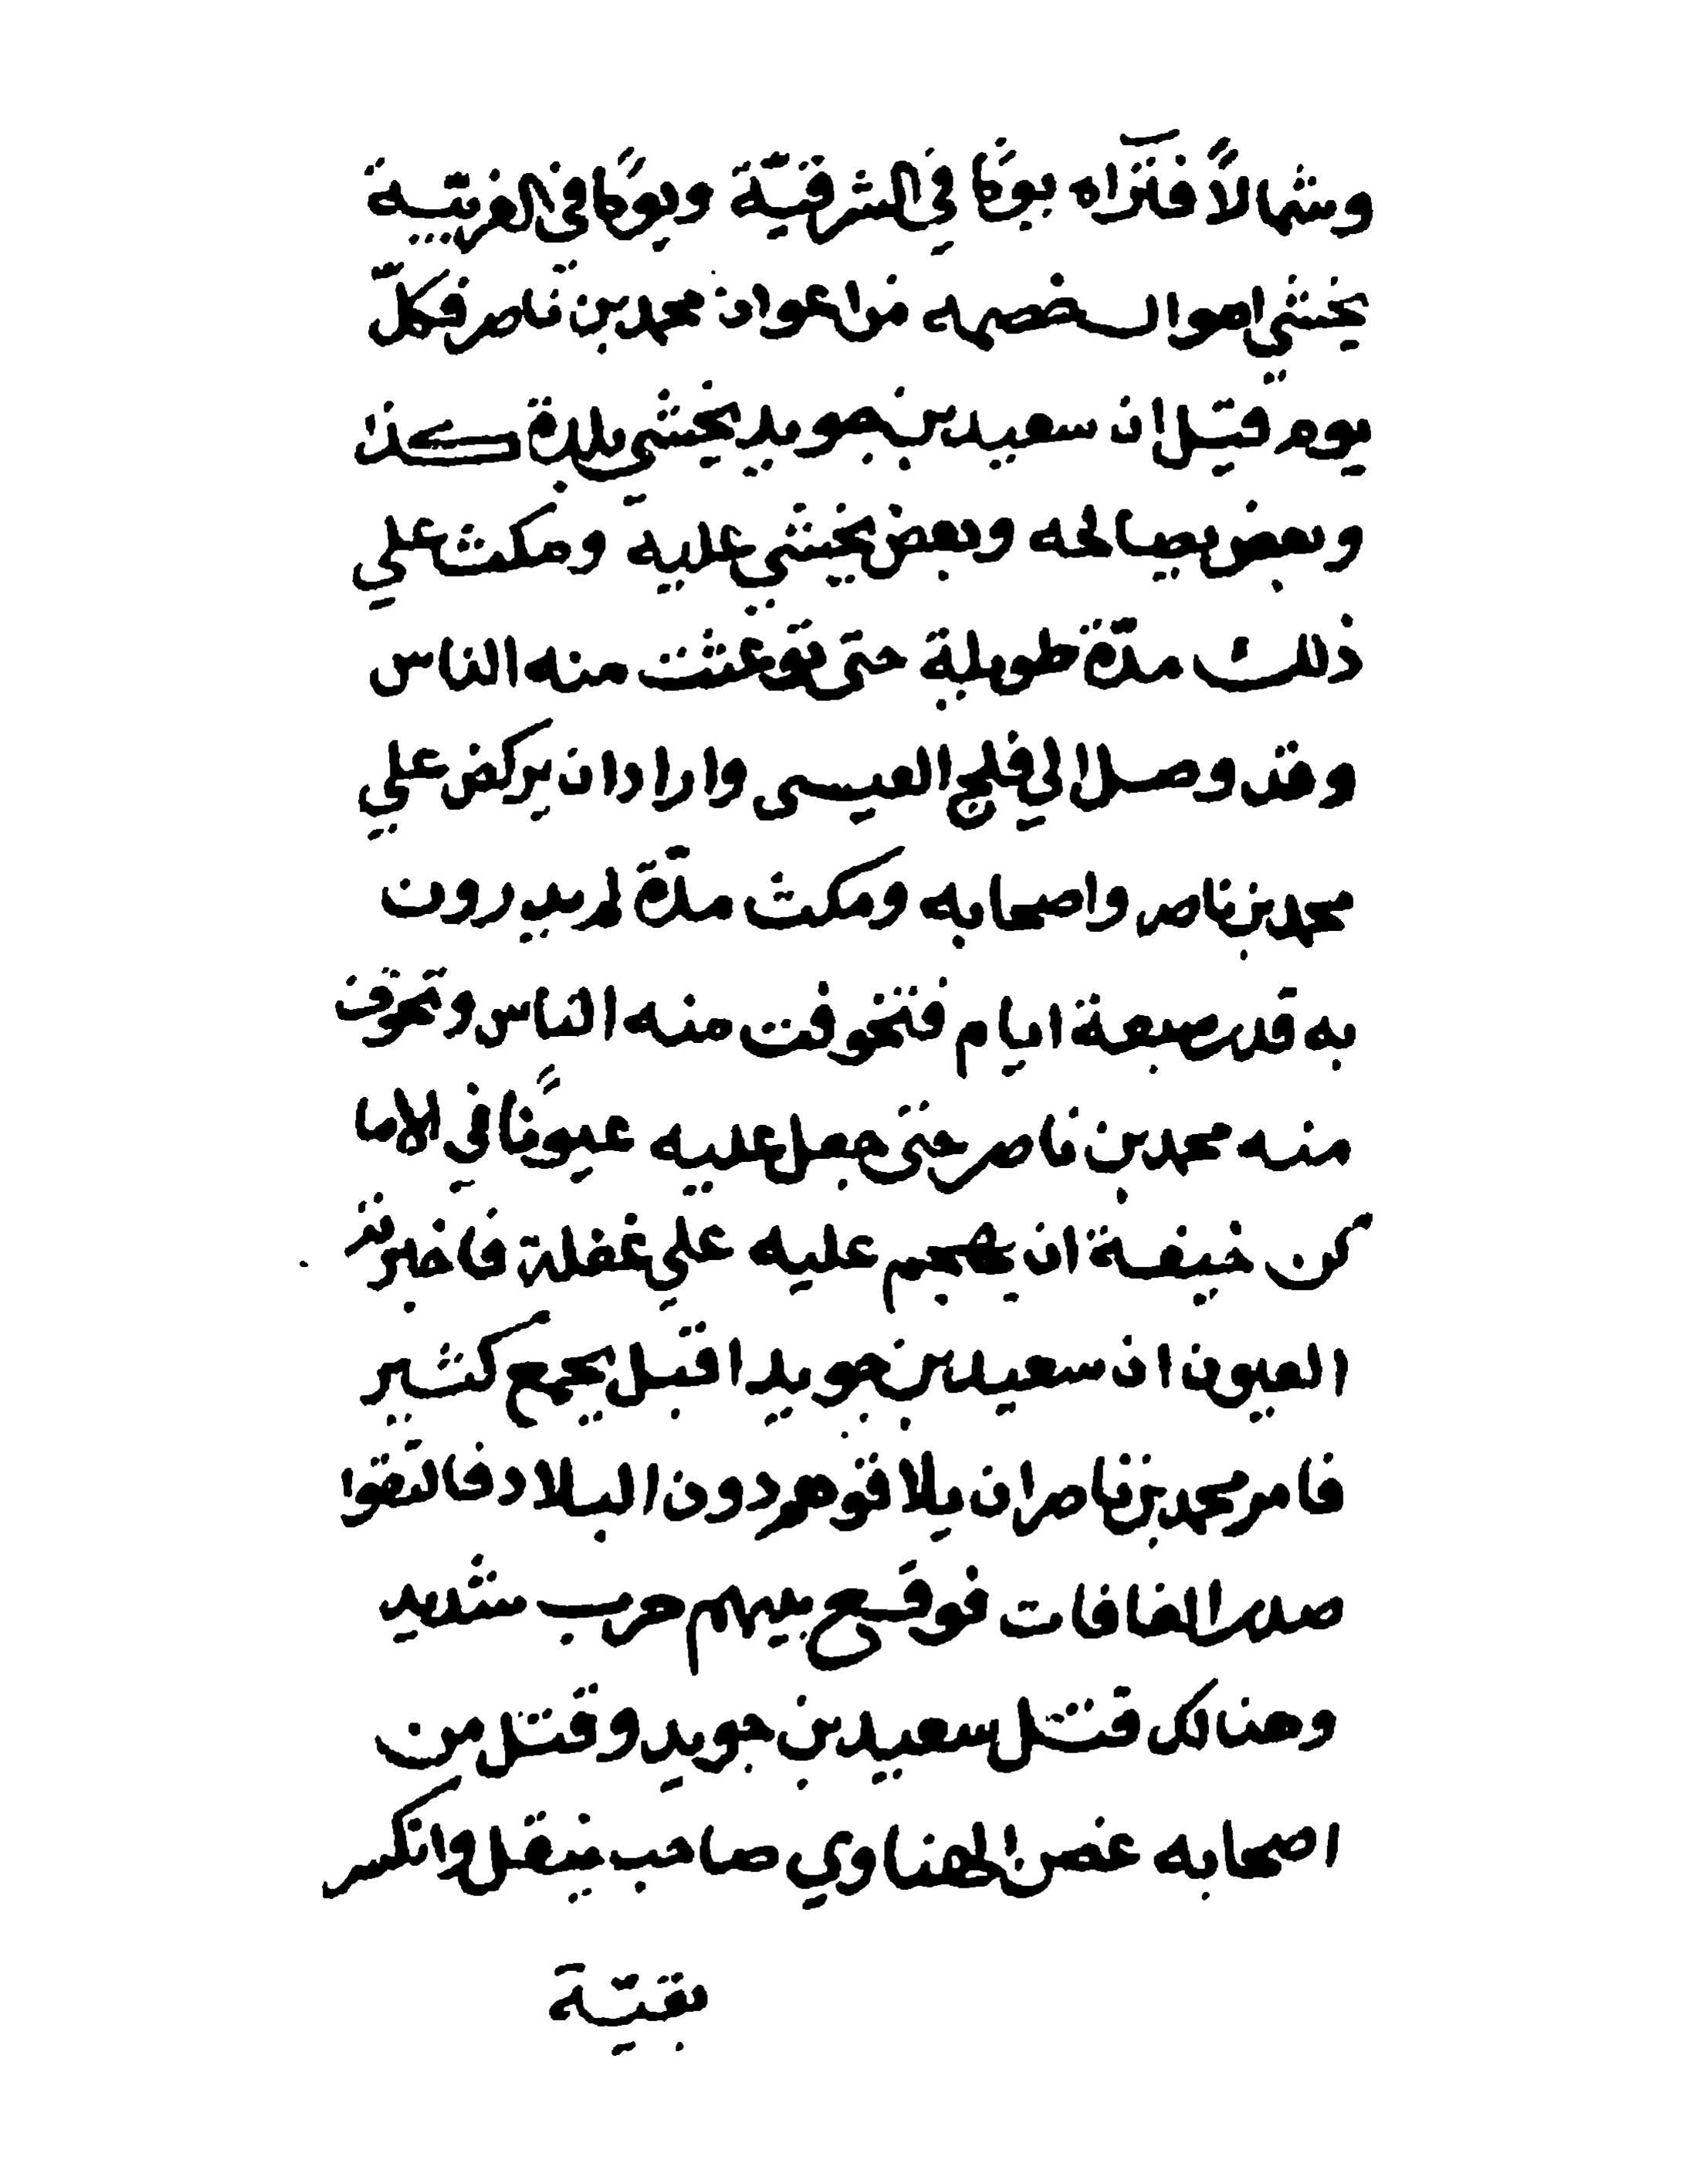 وشمالاً فتراه يومًا في الشرقيّة ويومًا في الغربيّة
يخشي اموال خصمه من اعوان محمد بن ناصر فكلّ
يوم قتيل ان سعيد بن جويد يخشي بلدة كذا
وبعض يصالحه وبعض يخشي عليه ومكث علي
ذلك مدّة طويلة حتى توغثت منه الناس
وقد وصل الي فلج العيسى واراد ان يركض علي
محمد بن ناصر واصحابه ومكث مدّة لم يدرون
به قدر سبعة ايام فتخوفت منه الناس وتخوف
منه محمد بن ناصر حتى جعل عليه عيونًا في الاما
كن خيفة ان يهجم عليه علي غفلة فاخبرته
العيون ان سعيد بن جويد اقبل بجمع كثير
فامر محمد بن ناصر ان يلاقوهم دون البلاد فالتقوا
صدر الغافات فوقع بينهم حرب شديد
وهنالك قتل سعيد بن جويد وقتل من
اصحابه غصن الهناوي صاحب ينقل وانكسر
بقيّة